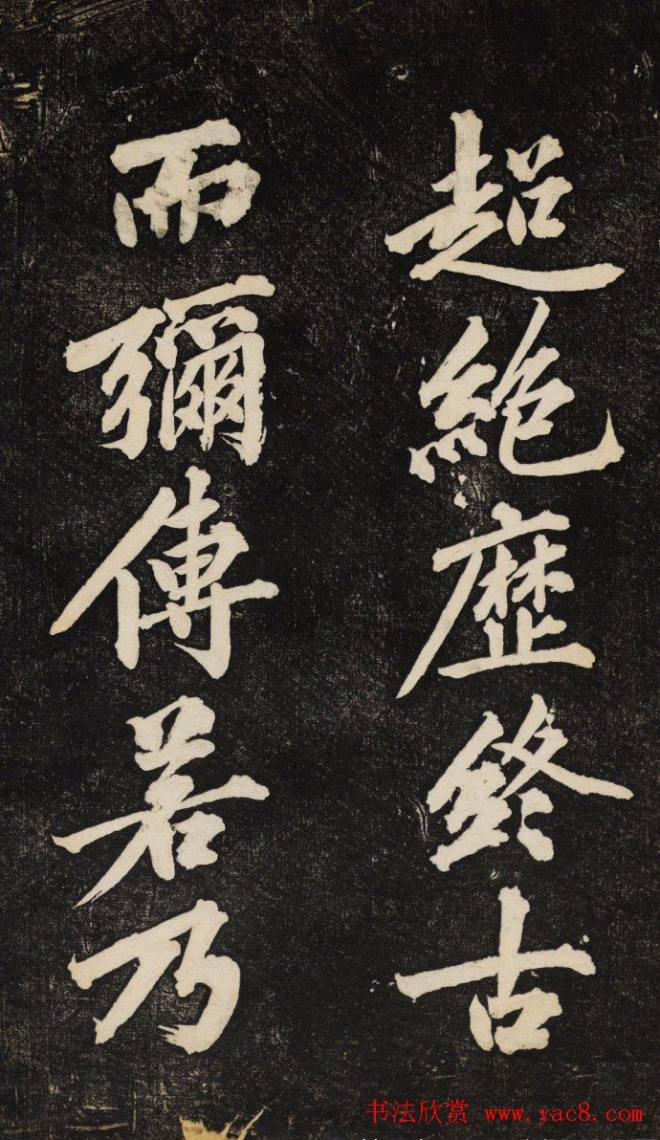 超絶歴終古
而彌傳若乃
书法欣赏 www.yac8.com